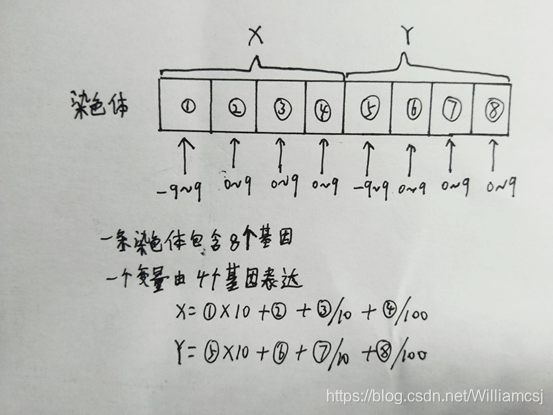 X Y
染色体 ① ② ③ ④ ⑤ ⑥ ⑦ ⑧
-9~9 0~9 0~9 0~9 -9~9 0~9 0~9 0~9
一条染色体包含8个基因
一个变量由4个基因表达
X=①×10+②+③/10+④/100
Y=⑤×10+⑥+⑦/10+⑧/100
https://blog.csdn.net/Williamcsj